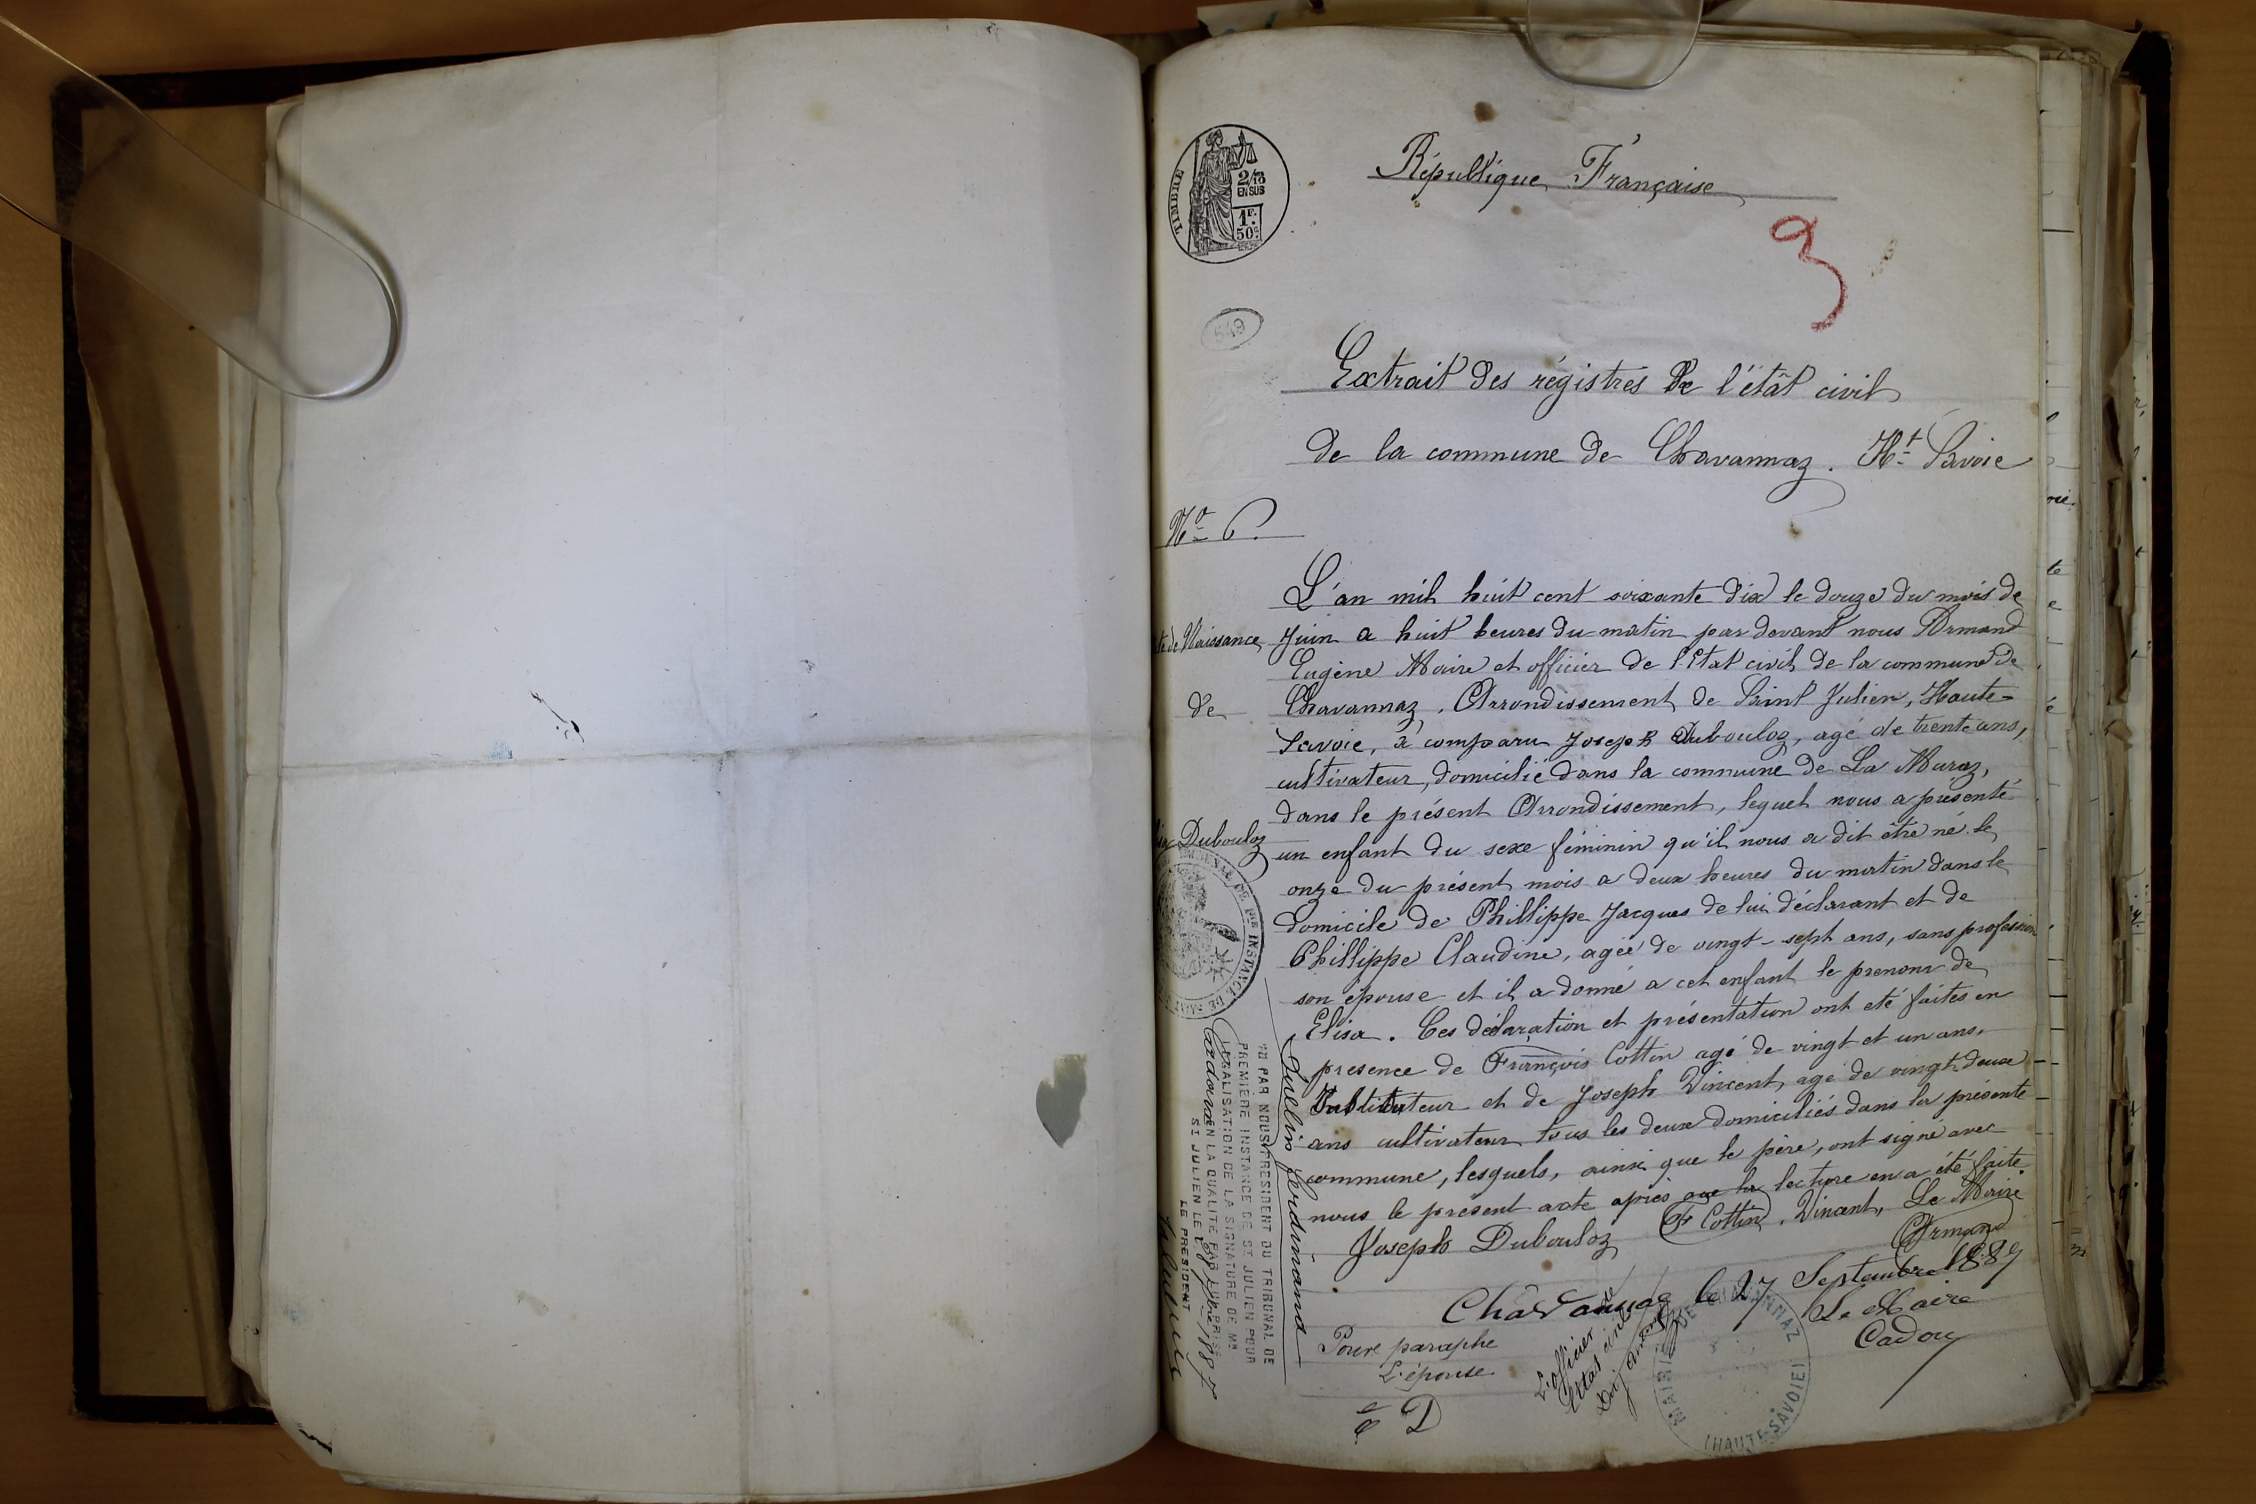 République Française
TIMBRE
2/10
EN SUS
1F.
50c.
3
549
Extrait des régistres de l'étât civil
de la commune de Chavannaz. Ht Savoie
No 6.
L'an mil huit cent soixante dix le douze du mois de
te de Naissance Juin a huit heures du matin par devant nous Armand
Eugène Maire et officier de l'état civil de la commune de
de Chavannaz, Arrondissement de Saint Julien, Haute-
Savoie, à comparu Joseph Dubouloz, agé de trente ans,
cultivateur, domicilié dans la commune de La Muraz,
dans le présent Arrondissement, lequel nous a présenté
Dubouloz un enfant du sexe féminin qu'il nous a dit être né le
onze du présent mois a deux heures du matin dans le
domicile de Phillippe Jacques de lui déclarant et de
Phillippe Claudine, agée de vingt-sept ans, sans profession
son épouse et il a donné a cet enfant le prenom de
Elisa. Ces déclaration et présentation ont eté faites en
presence de François Cottin agé de vingt et un ans,
Instituteur et de Joseph Vincent, agé de vingt deux
ans cultivateur tous les deux domiciliés dans la présente
commune, lesquels, ainsi que le père, ont signé avec
nous le présent acte après que la lecture en a été faite
Joseph Dubouloz F Cottin, Vincent, Le Maire
Armand
Chavannaz le 27 Septembre 1887
Le Maire
Cadoux
Pour paraphe
L'épouse
e D
L'officier de
l'état civil
MAIRIE DE CHAVANNAZ
(HAUTE-SAVOIE)
INSTANCE DE
Ferdinand
VU PAR NOUS PRESIDENT DU TRIBUNAL DE
PREMIERE INSTANCE DE ST JULIEN POUR
LEGALISATION DE LA SIGNATURE DE Mr
Cadoux EN LA QUALITE PAR LUI PRISE
ST JULIEN LE 28 7bre 1887
LE PRESIDENT